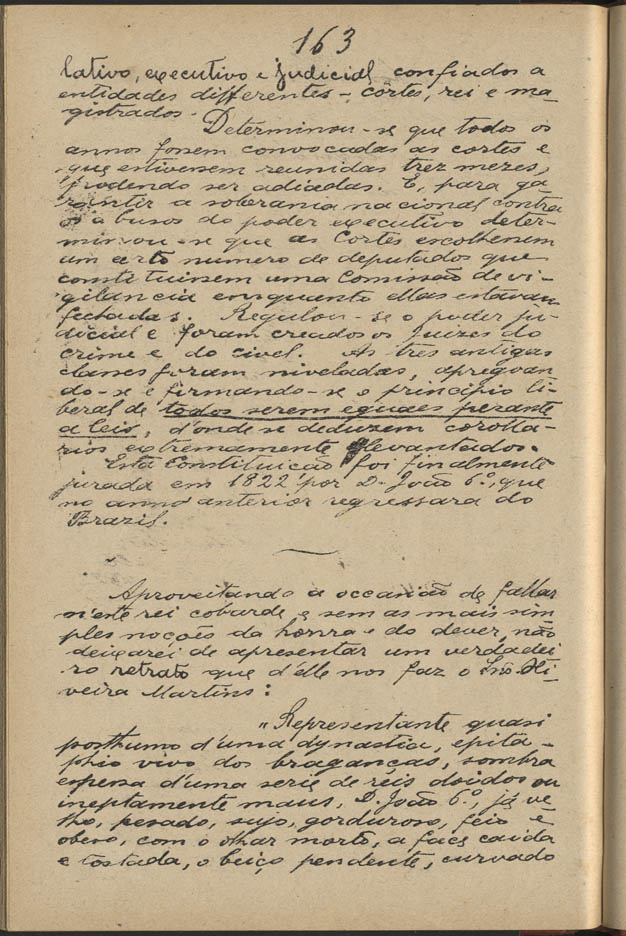 163
lativo, executivo e judicial confiados a
entidades differentes - côrtes, rei e ma-
gistrados.
Determinou-se que todos os
annos fossem convocadas as cortes e
que estivessem reunidas trez mezes,
podendo ser adiadas. E, para ga-
rantir a soberania nacional contra
os abusos do poder executivo deter-
minou-se que as Cortes escolhessem
um certo numero de deputados que
constituissem uma Comissão de vi-
gilancia emquanto ellas estavam
fechadas. Regulou-se o poder ju-
dicial e foram creados os juizes do
crime e do civel. As tres antigas
classes foram niveladas, apregoan
do-se e firmando-se o principio li-
beral de todos serem eguaes perante
a lei, d'onde se deduzem corolla-
rios extremamente levantados.
Esta Constituição foi finalmente
jurada em 1822 por D. João 6.º, que
no anno anterior regressara do
Brazil.
Aproveitando a occasião de fallar
n'este rei cobarde e sem as mais sim
ples noções da honra e do dever, não
deixarei de apresentar um verdadei
ro retrato que d'elle nos faz o Snr. Oli-
veira Martins:
"Representante quasi
posthumo d'uma dynastia, epita-
phio vivo dos braganças, sombra
espessa d'uma serie de réis doidos ou
ineptamente maus, D. João 6.º, já ve
lho, pesado, sujo, gorduroso, feio e
obeso, com o olhar morto, a face caida
e tostada, o beiço pendente, curvado